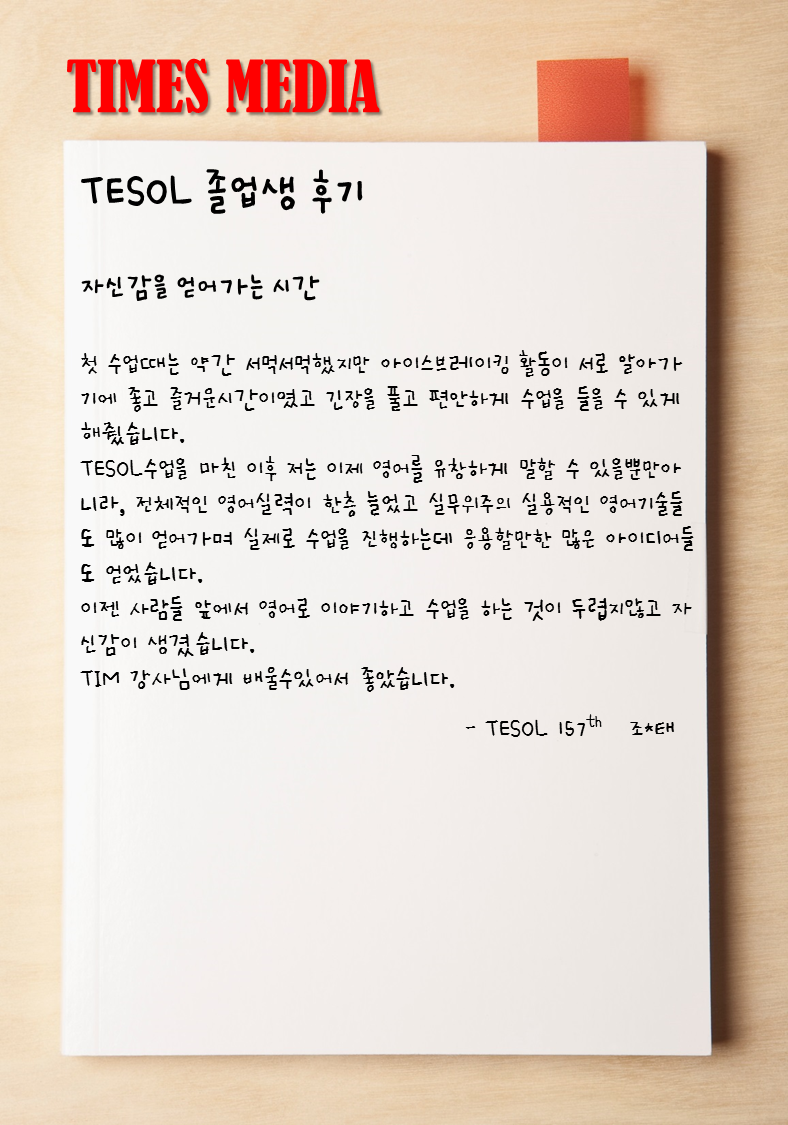 TIMES MEDIA
TESOL 졸업생 후기
자신감을 얻어가는 시간
첫 수업때는 약간 서먹서먹했지만 아이스브레이킹 활동이 서로 알아가
기에 좋고 즐거운시간이였고 긴장을 풀고 편안하게 수업을 들을 수 있게
해줬습니다.
TESOL수업을 마친 이후 저는 이제 영어를 유창하게 말할 수 있을뿐만아
니라, 전체적인 영어실력이 한층 늘었고 실무위주의 실용적인 영어기술들
도 많이 얻어가며 실제로 수업을 진행하는데 응용할만한 많은 아이디어들
도 얻었습니다.
이젠 사람들 앞에서 영어로 이야기하고 수업을 하는 것이 두렵지않고 자
신감이 생겼습니다.
TIM 강사님에게 배울수있어서 좋았습니다.
- TESOL 157th 조*태